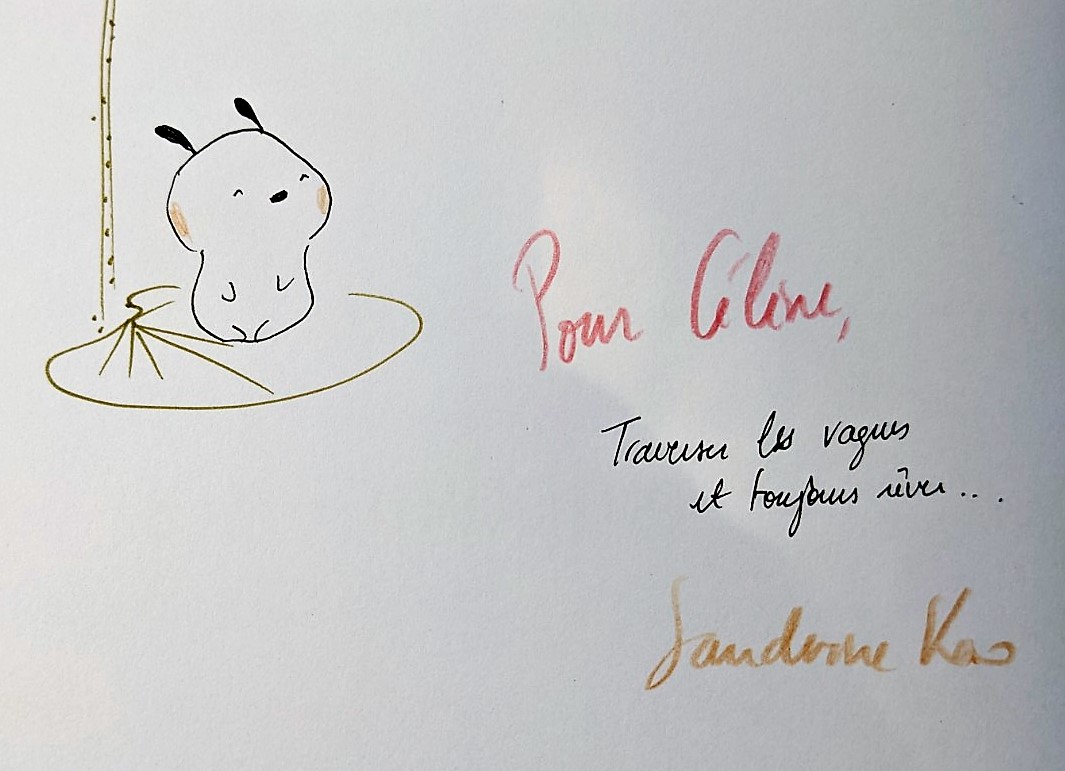 Pour Céline,
Traverser les vagues
et toujours rêver...
Sandrine Kao